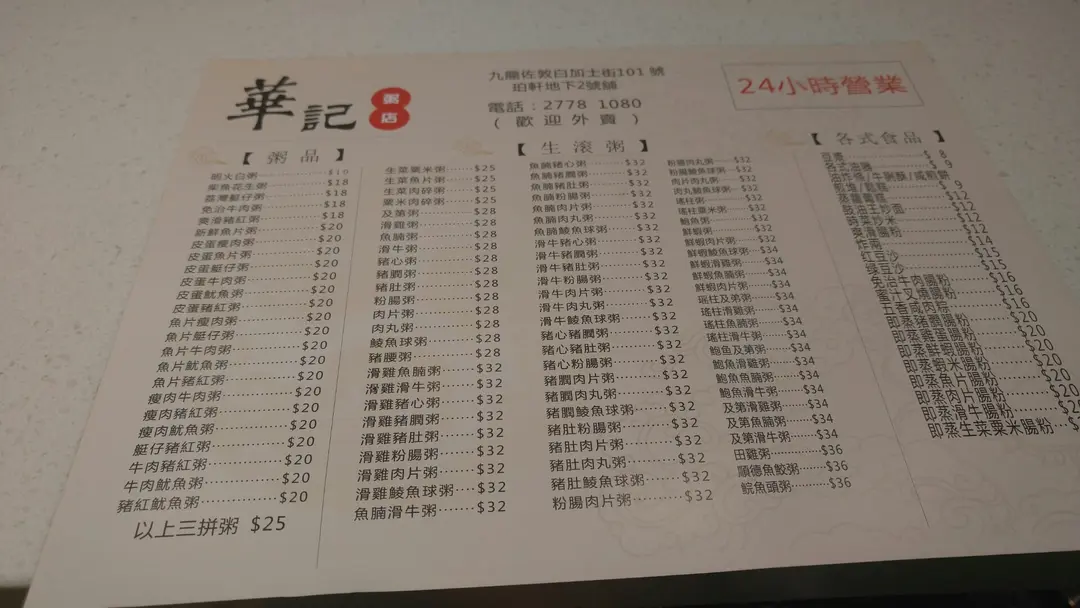 華記
粥店
九龍佐敦白加士街101 號
珀軒地下2號舖
電話:2778 1080
( 歡 迎 外 賣 )
24小時營業
【 粥 品 】
柴魚花生粥 $18
荔灣艇仔粥 $18
免治牛肉粥 $18
爽滑豬紅粥 $18
新鮮魚片粥 $20
皮蛋瘦肉粥 $20
皮蛋魚片粥 $20
皮蛋艇仔粥 $20
皮蛋牛肉粥 $20
皮蛋魷魚粥 $20
皮蛋豬紅粥 $20
魚片瘦肉粥 $20
魚片艇仔粥 $20
魚片牛肉粥 $20
魚片魷魚粥 $20
魚片豬紅粥 $20
瘦肉牛肉粥 $20
瘦肉豬紅粥 $20
瘦肉魷魚粥 $20
艇仔豬紅粥 $20
牛肉豬紅粥 $20
牛肉魷魚粥 $20
豬紅魷魚粥 $20
以上三拼粥 $25
【 生 滾 粥 】
生菜粟米粥 $25
生菜魚片粥 $25
生菜肉碎粥 $25
粟米肉碎粥 $25
及第粥 $28
滑雞粥 $28
魚腩粥 $28
滑牛粥 $28
豬心粥 $28
豬膶粥 $28
豬肚粥 $28
粉腸粥 $28
肉片粥 $28
肉丸粥 $28
鯪魚球粥 $28
豬腰粥 $28
滑雞魚腩粥 $32
滑雞滑牛粥 $32
滑雞豬心粥 $32
滑雞豬膶粥 $32
滑雞豬肚粥 $32
滑雞粉腸粥 $32
滑雞肉片粥 $32
滑雞鯪魚球粥 $32
魚腩滑牛粥 $32
魚腩豬心粥 $32
魚腩豬膶粥 $32
魚腩豬肚粥 $32
魚腩粉腸粥 $32
魚腩肉片粥 $32
魚腩肉丸粥 $32
魚腩鯪魚球粥 $32
滑牛豬心粥 $32
滑牛豬膶粥 $32
滑牛豬肚粥 $32
滑牛粉腸粥 $32
滑牛肉片粥 $32
滑牛肉丸粥 $32
滑牛鯪魚球粥 $32
豬心豬膶粥 $32
豬心豬肚粥 $32
豬心粉腸粥 $32
豬膶肉片粥 $32
豬膶肉丸粥 $32
豬膶鯪魚球粥 $32
豬肚粉腸粥 $32
豬肚肉片粥 $32
豬肚肉丸粥 $32
豬肚鯪魚球粥 $32
粉腸肉片粥 $32
粉腸肉丸粥 $32
粉腸鯪魚球粥 $32
肉片肉丸粥 $32
肉丸鯪魚球粥 $32
瑤柱粥 $32
瑤柱粟米粥 $32
鮑魚粥 $32
鮮蝦粥 $32
鮮蝦肉片粥 $32
鮮蝦鯪魚球粥 $34
鮮蝦滑雞粥 $34
鮮蝦魚腩粥 $34
鮮蝦肉片粥 $34
瑤柱及第粥 $34
瑤柱滑雞粥 $34
瑤柱魚腩粥 $34
瑤柱滑牛粥 $34
鮑魚及第粥 $34
鮑魚滑雞粥 $34
鮑魚魚腩粥 $34
鮑魚滑牛粥 $34
及第滑雞粥 $34
及第魚腩粥 $34
及第滑牛粥 $34
田雞粥 $36
順德魚餃粥 $36
鯇魚頭粥 $36
【 各式食品 】
豆漿 $ 8
各式油器 $ 9
炸兩 $14
紅豆沙 $15
綠豆沙 $15
免治牛肉腸粉 $16
蜜汁叉燒腸粉 $16
五香咸肉粽 $16
即蒸豬膶腸粉 $20
即蒸雞蛋腸粉 $20
即蒸鮮蝦腸粉 $20
即蒸蝦米腸粉 $20
即蒸魚片腸粉 $20
即蒸肉片腸粉 $20
即蒸滑牛腸粉
即蒸生菜粟米腸粉